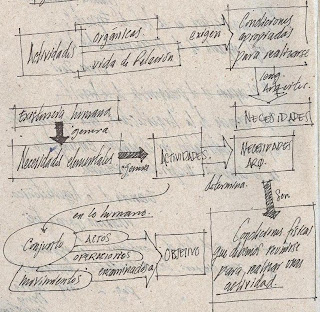 Actividades
orgánicas
vida de Relación
exigen
Condiciones
apropiadas
para realizarse
NECESIDADES
existencia humana
genera
Necesidades elementales
genera
ACTIVIDADES.
NECESIDADES
ARQ.
determina.
son
en lo humano.
Conjunto
ACTOS
OPERACIONES
movimientos
encaminados a
OBJETIVO
Condiciones físicas
que debemos reunirse
para realizar una
actividad.